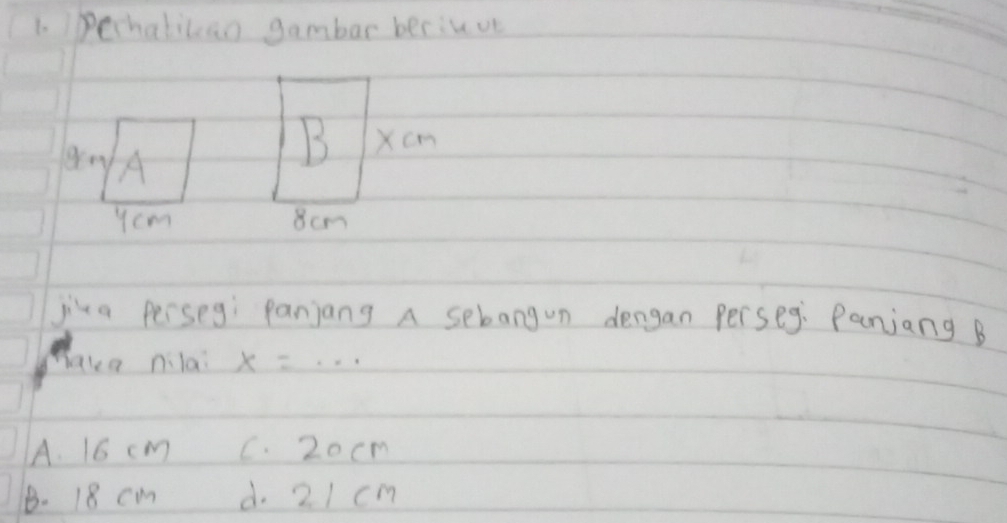 1. Perhatikan gambar berikut
A
B
x cm
4cm
8cm
jika Persegi Panjang A sebangun dengan Persegi Panjang B
Maka nilai x = ...
A. 16 cm C. 20 cm
B. 18 cm d. 21 cm